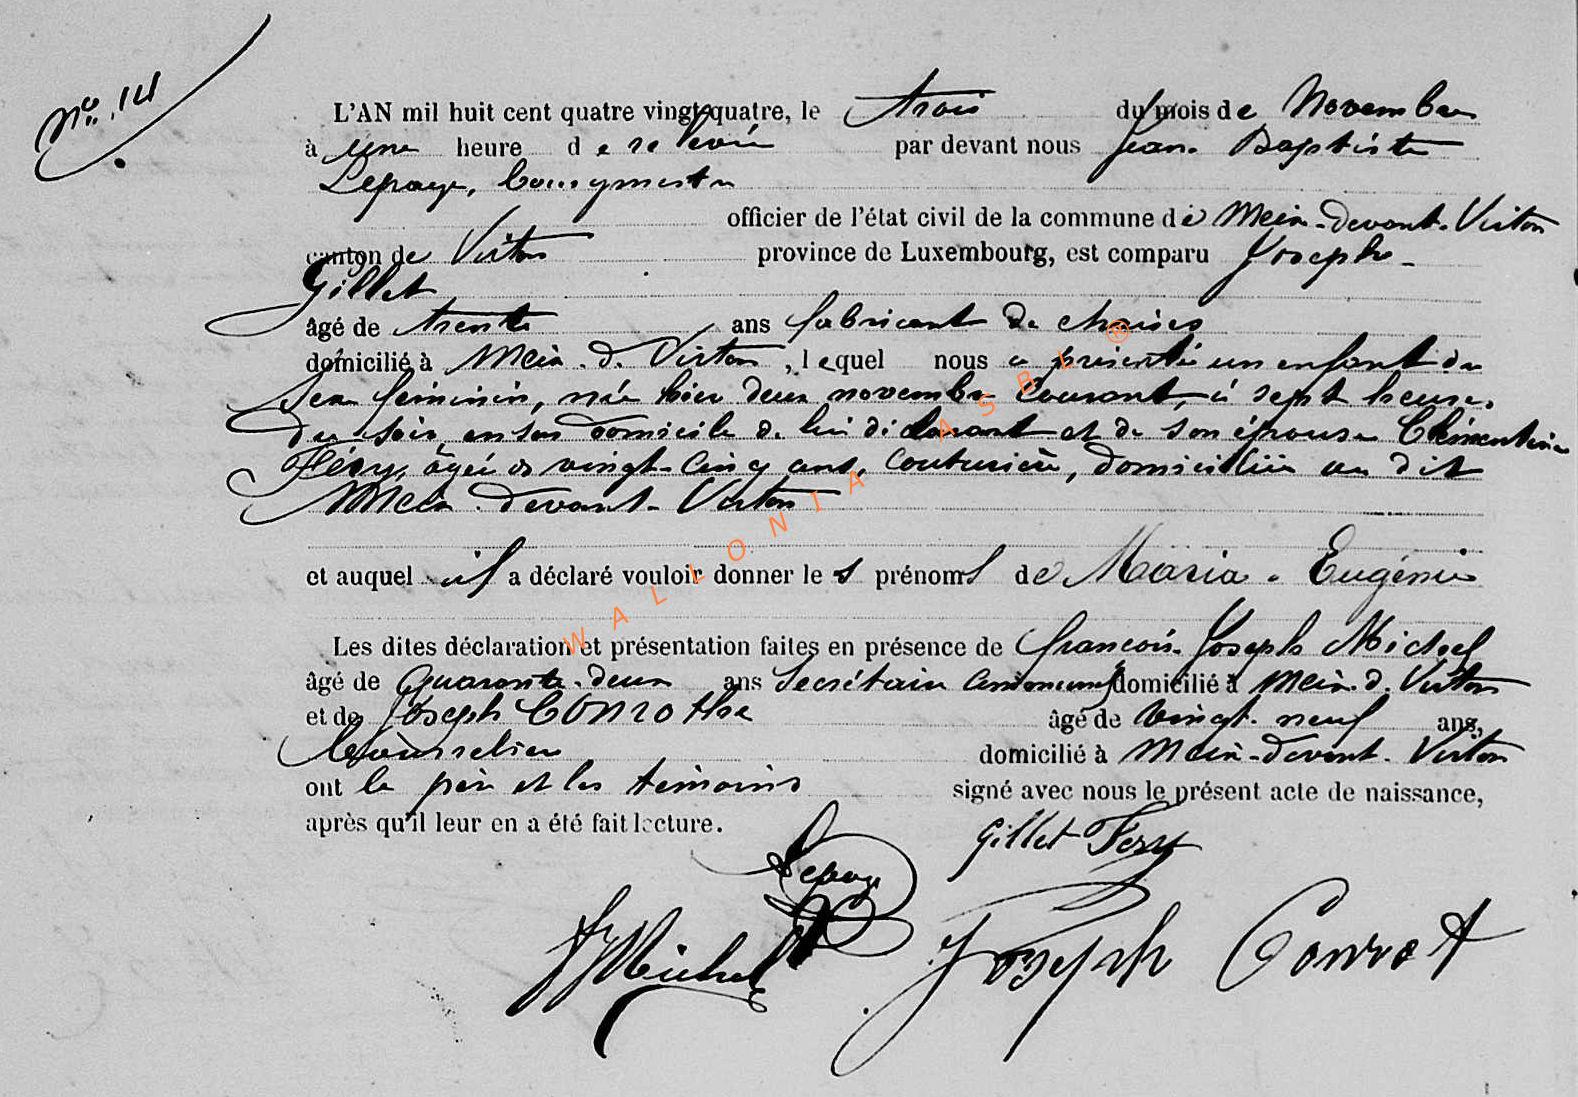 No. 14
L'AN mil huit cent quatre vingt-quatre, le trois du mois de Novembre
à une heure de relevée par devant nous Jean Baptiste
Lepage, bourgmestre
officier de l'état civil de la commune de Meix-devant-Virton
canton de Virton province de Luxembourg, est comparu Joseph
Gillet
âgé de trente ans fabricant de chaises
domicilié à Meix-d.-Virton, lequel nous a présenté un enfant du
sexe féminin, née hier deux novembre courant, à sept heures
du soir, en son domicile de lui déclarant et de son épouse Clémentine
Féry, âgée de vingt-cinq ans, couturière, domiciliée au dit
Meix-devant-Virton
et auquel il a déclaré vouloir donner les prénoms de Maria-Eugénie
Les dites déclaration et présentation faites en présence de François-Joseph Michel
âgé de Quarante-deux ans Secrétaire communal domicilié à Meix-d.-Virton
et de Joseph Conrothe âgé de vingt-neuf ans,
bourrelier domicilié à Meix-devant-Virton
ont le père et les témoins signé avec nous le présent acte de naissance,
après qu'il leur en a été fait lecture.
Gillet Fery
Lepage
FJMichel Joseph Conrot
WALLONIA ASBL ®